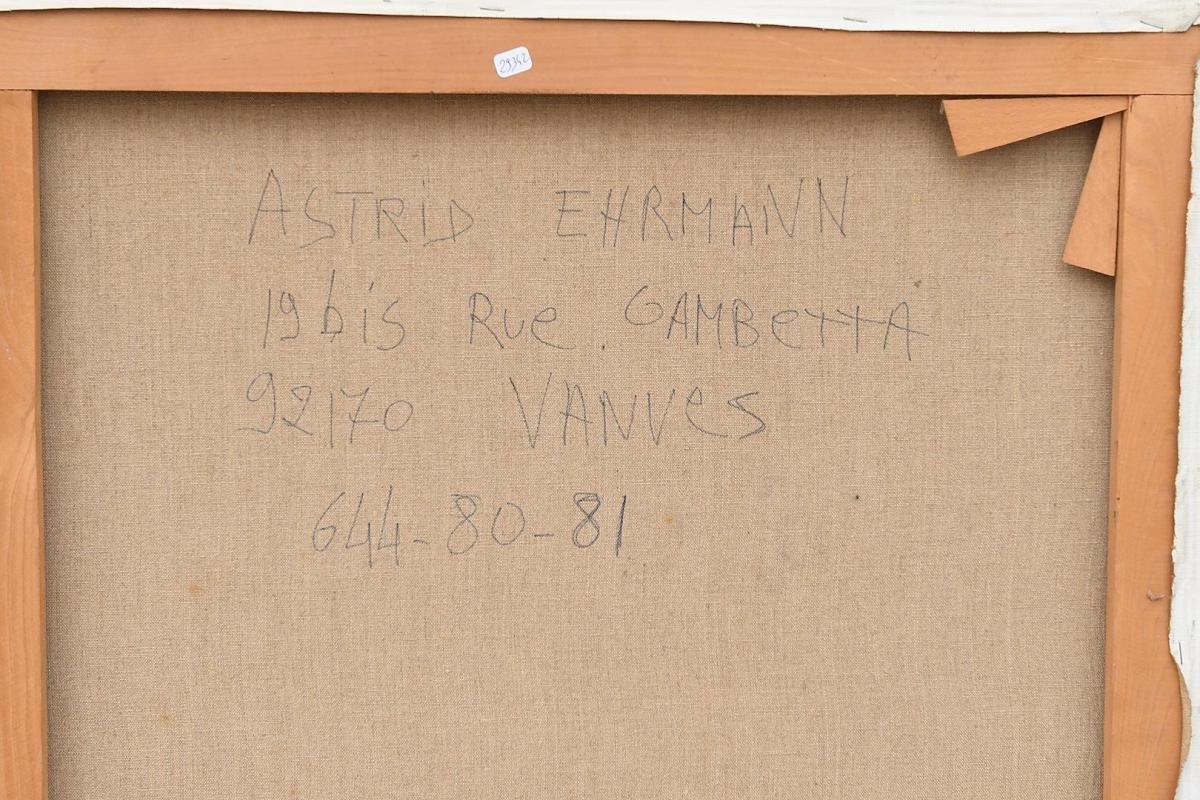 29342
ASTRID EHRMANN
19 bis Rue GAMBeTTA
92170 VANVeS
644-80-81